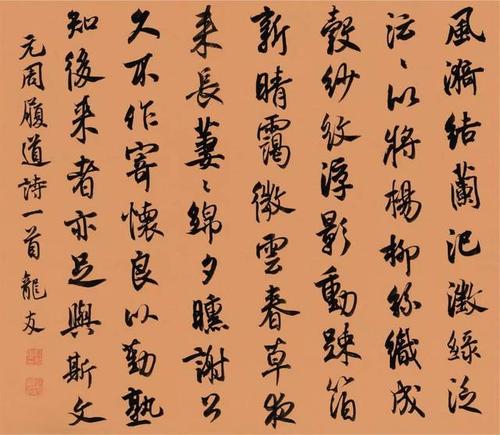 風漪結蘭汜綠泛
沄〻以將楊柳絲織成
縠紗紋浮影動踈箔
新晴靄微雲春草夜
来長萋〻綿夕曛謝公
久不作寄懷良以勤孰
知後来者亦足與斯文
元周履道詩一首龍友